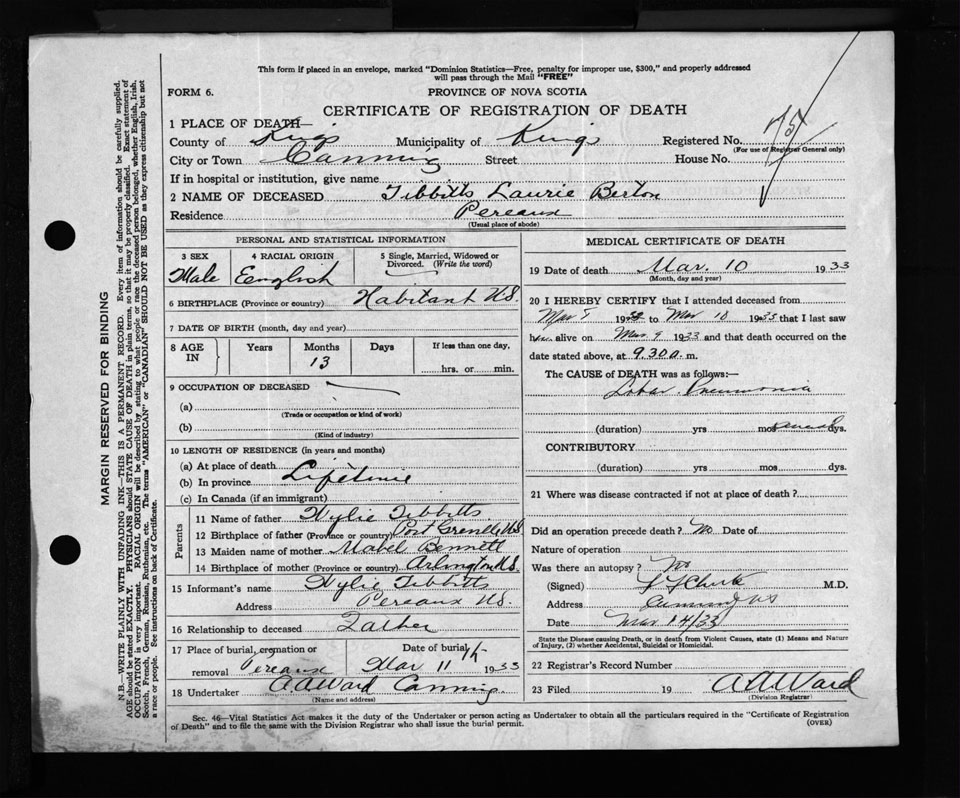 This form if placed in an envelope, marked "Dominion Statistics—Free, penalty for improper use, $300," and properly addressed
will pass through the Mail "FREE"
FORM 6.
PROVINCE OF NOVA SCOTIA
CERTIFICATE OF REGISTRATION OF DEATH
1 PLACE OF DEATH—
County of Kings Municipality of Kings Registered No.
(For use of Registrar General only)
City or Town Canning Street House No.
If in hospital or institution, give name
2 NAME OF DECEASED Tibbitts Laurie Berton
Residence Pereaux
(Usual place of abode)
PERSONAL AND STATISTICAL INFORMATION
3 SEX Male
4 RACIAL ORIGIN English
5 Single, Married, Widowed or Divorced. (Write the word)
6 BIRTHPLACE (Province or country) Habitant N.S.
7 DATE OF BIRTH (month, day and year)
8 AGE IN Years Months 13 Days If less than one day, hrs. or min.
9 OCCUPATION OF DECEASED
(a)
(Trade or occupation or kind of work)
(b)
(Kind of industry)
10 LENGTH OF RESIDENCE (in years and months)
(a) At place of death
(b) In province Lifetime
(c) In Canada (if an immigrant)
Parents
11 Name of father Wylie Tibbitts
12 Birthplace of father (Province or country) N.S.
13 Maiden name of mother Mabel Bennett
14 Birthplace of mother (Province or country) Arlington N.S.
15 Informant's name Wylie Tibbitts
Address Pereaux N.S.
16 Relationship to deceased Father
17 Place of burial, cremation or removal Pereaux
Date of burial Mar 11 1933
18 Undertaker A.A Ward Canning.
(Name and address)
MEDICAL CERTIFICATE OF DEATH
19 Date of death Mar. 10 1933
(Month, day and year)
20 I HEREBY CERTIFY that I attended deceased from
Mar 1933 to Mar 10 1933 that I last saw
him alive on Mar 9 1933 and that death occurred on the
date stated above, at 9.30 a. m.
The CAUSE of DEATH was as follows:—
Lobar Pneumonia
(duration) yrs mos dys.
CONTRIBUTORY
(duration) yrs mos dys.
21 Where was disease contracted if not at place of death?
Did an operation precede death? No Date of
Nature of operation
Was there an autopsy? No
(Signed) M.D.
Address Canning NS
Date Mar 14/33
State the Disease causing Death, or in death from Violent Causes, state (1) Means and Nature
of Injury, (2) whether Accidental, Suicidal or Homicidal.
22 Registrar's Record Number
23 Filed 19 A.A Ward
(Division Registrar)
Sec. 46—Vital Statistics Act makes it the duty of the Undertaker or person acting as Undertaker to obtain all the particulars required in the "Certificate of Registration
of Death" and to file the same with the Division Registrar who shall issue the burial permit.
(OVER)
MARGIN RESERVED FOR BINDING
N.B.—WRITE PLAINLY WITH UNFADING INK—THIS IS A PERMANENT RECORD. Every item of information should be carefully supplied.
AGE should be stated EXACTLY. PHYSICIANS should STATE CAUSE OF DEATH in plain terms, so that it may be properly classified. Exact statement of
OCCUPATION is very important. RACIAL ORIGIN will be described by stating to what people or race the deceased person belonged, whether English, Irish,
Scotch, French, German, Russian, Ruthenian, etc. The terms "AMERICAN" or "CANADIAN" SHOULD NOT BE USED as they express citizenship but not
a race or people. See instructions on back of Certificate.